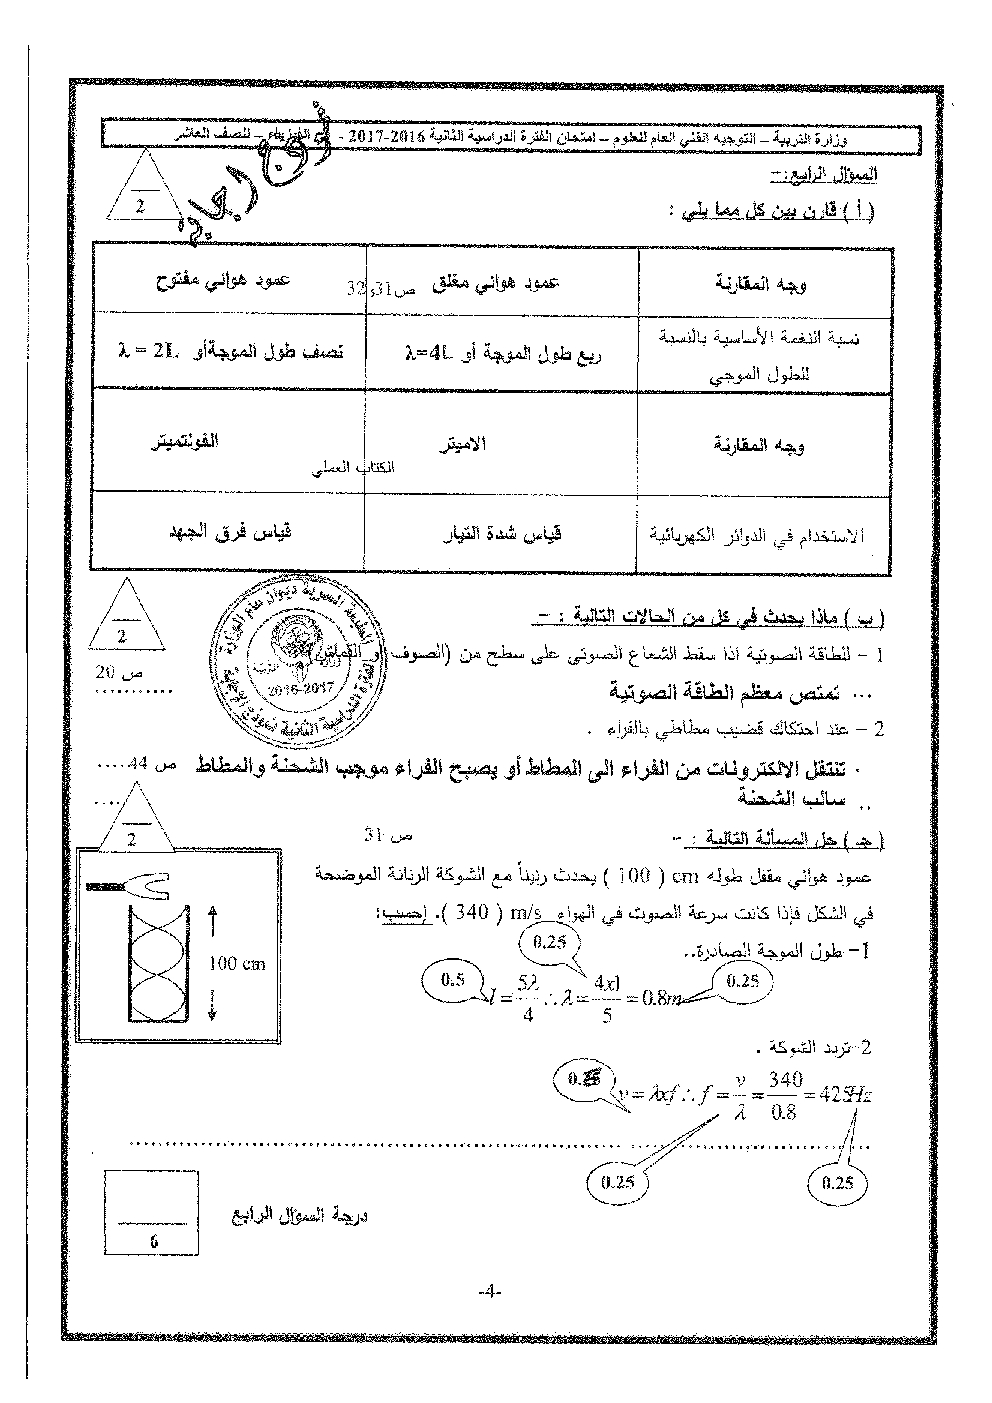 وزارة التربية – التوجيه الفني العام للعلوم – امتحان الفترة الدراسية الثانية 2016-2017 - في الفيزياء – للصف العاشر
نموذج اجابة
السؤال الرابع:-
2
( أ ) قارن بين كل مما يلي :
وجه المقارنة
عمود هوائي مغلق
ص31،32
عمود هوائي مفتوح
نسبة النغمة الأساسية بالنسبة للطول الموجي
ربع طول الموجة أو λ=4L
نصف طول الموجةأو λ = 2L
وجه المقارنة
الاميتر
الفولتميتر
الكتاب العملي
الاستخدام في الدوائر الكهربائية
قياس شدة التيار
قياس فرق الجهد
2
( ب ) ماذا يحدث في كل من الحالات التالية : –
1 – للطاقة الصوتية اذا سقط الشعاع الصوتي على سطح من (الصوف او القماش)
ص 20
... تمتص معظم الطاقة الصوتية
2016-2017
2 – عند احتكاك قضيب مطاطي بالفراء .
. تنتقل الالكترونات من الفراء الى المطاط أو يصبح الفراء موجب الشحنة والمطاط ص 44....
.. سالب الشحنة
2
( جـ ) حل المسألة التالية : –
ص 31
عمود هوائي مقفل طوله cm ( 100 ) يحدث رنيناً مع الشوكة الرنانة الموضحة
في الشكل فإذا كانت سرعة الصوت في الهواء m/s ( 340 ). إحسب:
100 cm
1– طول الموجة الصادرة..
0.25
0.5
0.25
l = 5λ/4 ∴ λ = 4x1/5 = 0.8m
2– تردد الشوكة .
v = λxf ∴ f = v/λ = 340/0.8 = 425Hz
0.25
0.25
درجة السؤال الرابع
6
-4-